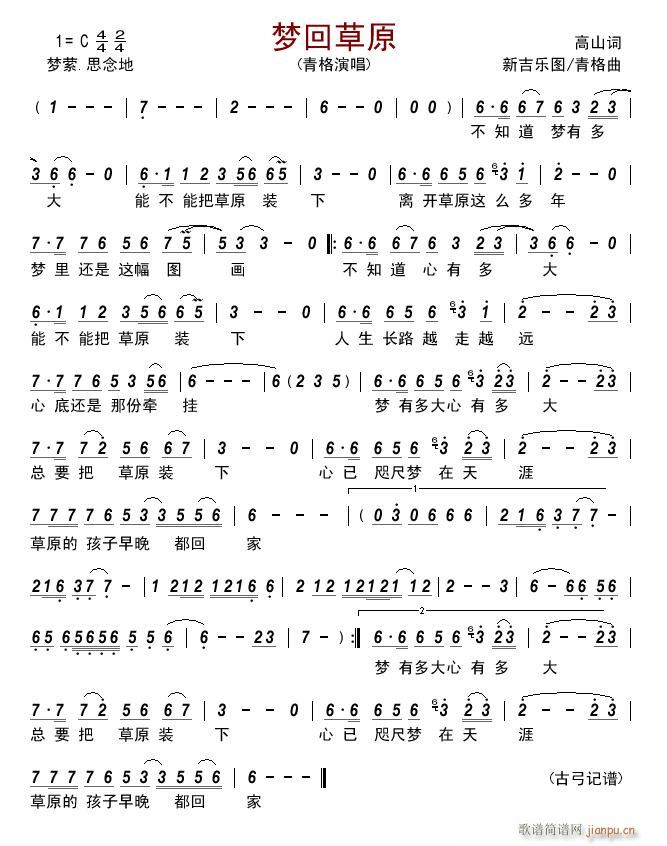 梦回草原
1= C 4/4 2/4
高山词
梦萦.思念地
(青格演唱)
新吉乐图/青格曲
( 1 - - - | 7 - - - | 2 - - - | 6 - - 0 | 0 0 ) | 6·6 6 7 6 3 2 3 |
不知道 梦有多
3 6 6 - 0 | 6·1 1 2 3 5 6 6 5 | 3 - - 0 | 6·6 6 5 6 6 3 1 | 2 - - 0 |
大 能不能把草原 装 下 离开草原这么多年
7·7 7 6 5 6 7 5 | 5 3 3 - 0 |: 6·6 6 7 6 3 2 3 | 3 6 6 - 0 |
梦里还是这幅 图 画 不知道心有多 大
6·1 1 2 3 5 6 6 5 | 3 - - 0 | 6·6 6 5 6 3 1 | 2 - - 2 3 |
能不能把草原 装 下 人生长路越 走越 远
7·7 7 6 5 3 5 6 | 6 - - - | 6 ( 2 3 5 ) | 6·6 6 5 6 6 3 2 3 | 2 - - 2 3 |
心底还是那份牵 挂 梦有多大心有多 大
7·7 7 2 5 6 6 7 | 3 - - 0 | 6·6 6 5 6 6 3 2 3 | 2 - - 2 3 |
总要把 草原装 下 心已 咫尺梦 在天 涯
1
7 7 7 7 6 5 3 3 5 5 6 | 6 - - - | ( 0 3 0 6 6 6 | 2 1 6 3 7 7 - |
草原的孩子早晚 都回 家
2 1 6 3 7 7 - | 1 2 1 2 1 2 1 2 1 6 | 2 1 2 1 2 1 2 1 1 2 | 2 - - 3 | 6 - 6 6 5 6 |
2
6 5 5 6 5 6 5 6 5 5 6 | 6 - - 2 3 | 7 - ) :| 6·6 6 5 6 6 3 2 3 | 2 - - 2 3 |
梦有多大心有多 大
7·7 7 2 5 6 6 7 | 3 - - 0 | 6·6 6 5 6 6 3 2 3 | 2 - - 2 3 |
总要把 草原装 下 心已 咫尺梦 在天 涯
7 7 7 7 6 5 3 3 5 5 6 | 6 - - - ‖
(古弓记谱)
草原的孩子早晚 都回 家
歌谱简谱网
jianpu.cn